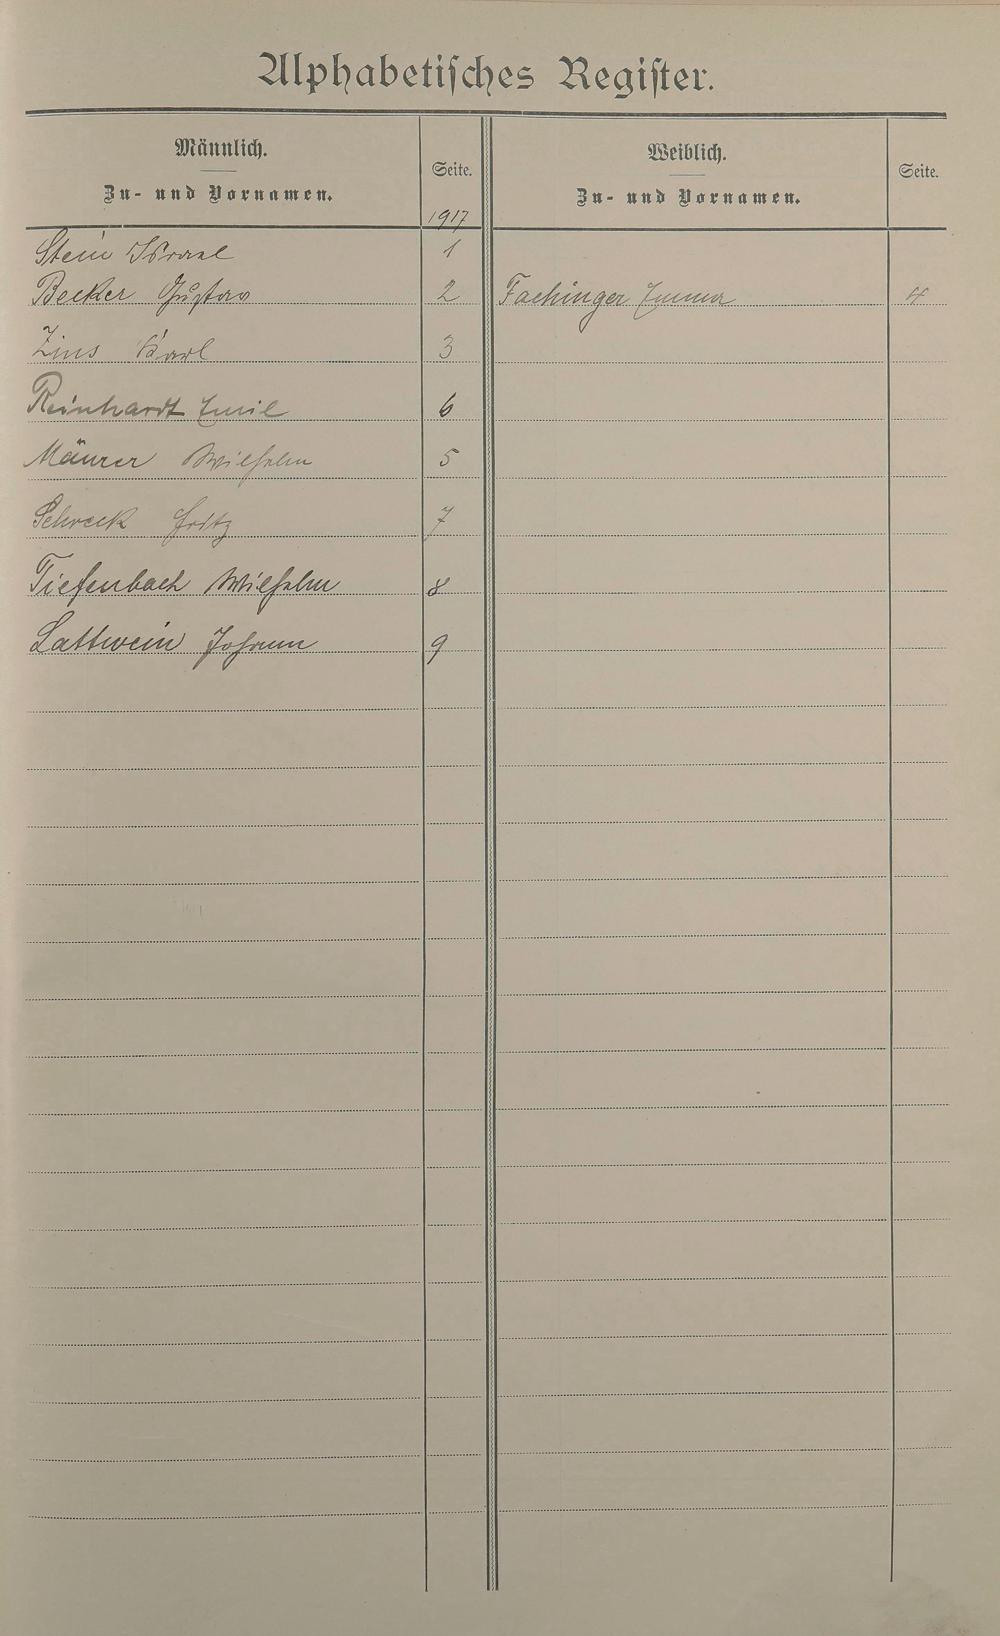 Alphabetisches Register.
Männlich.
Zu- und Vornamen.
Seite.
1917
Weiblich.
Zu- und Vornamen.
Seite.
Stein Israel 1
Becker Gustav 2 Fachinger Emma 4
Zins Karl 3
Reinhardt Emil 6
Mäurer Wilhelm 5
Schreck Fritz 7
Tiefenbach Wilhelm 8
Lattwein Johann 9